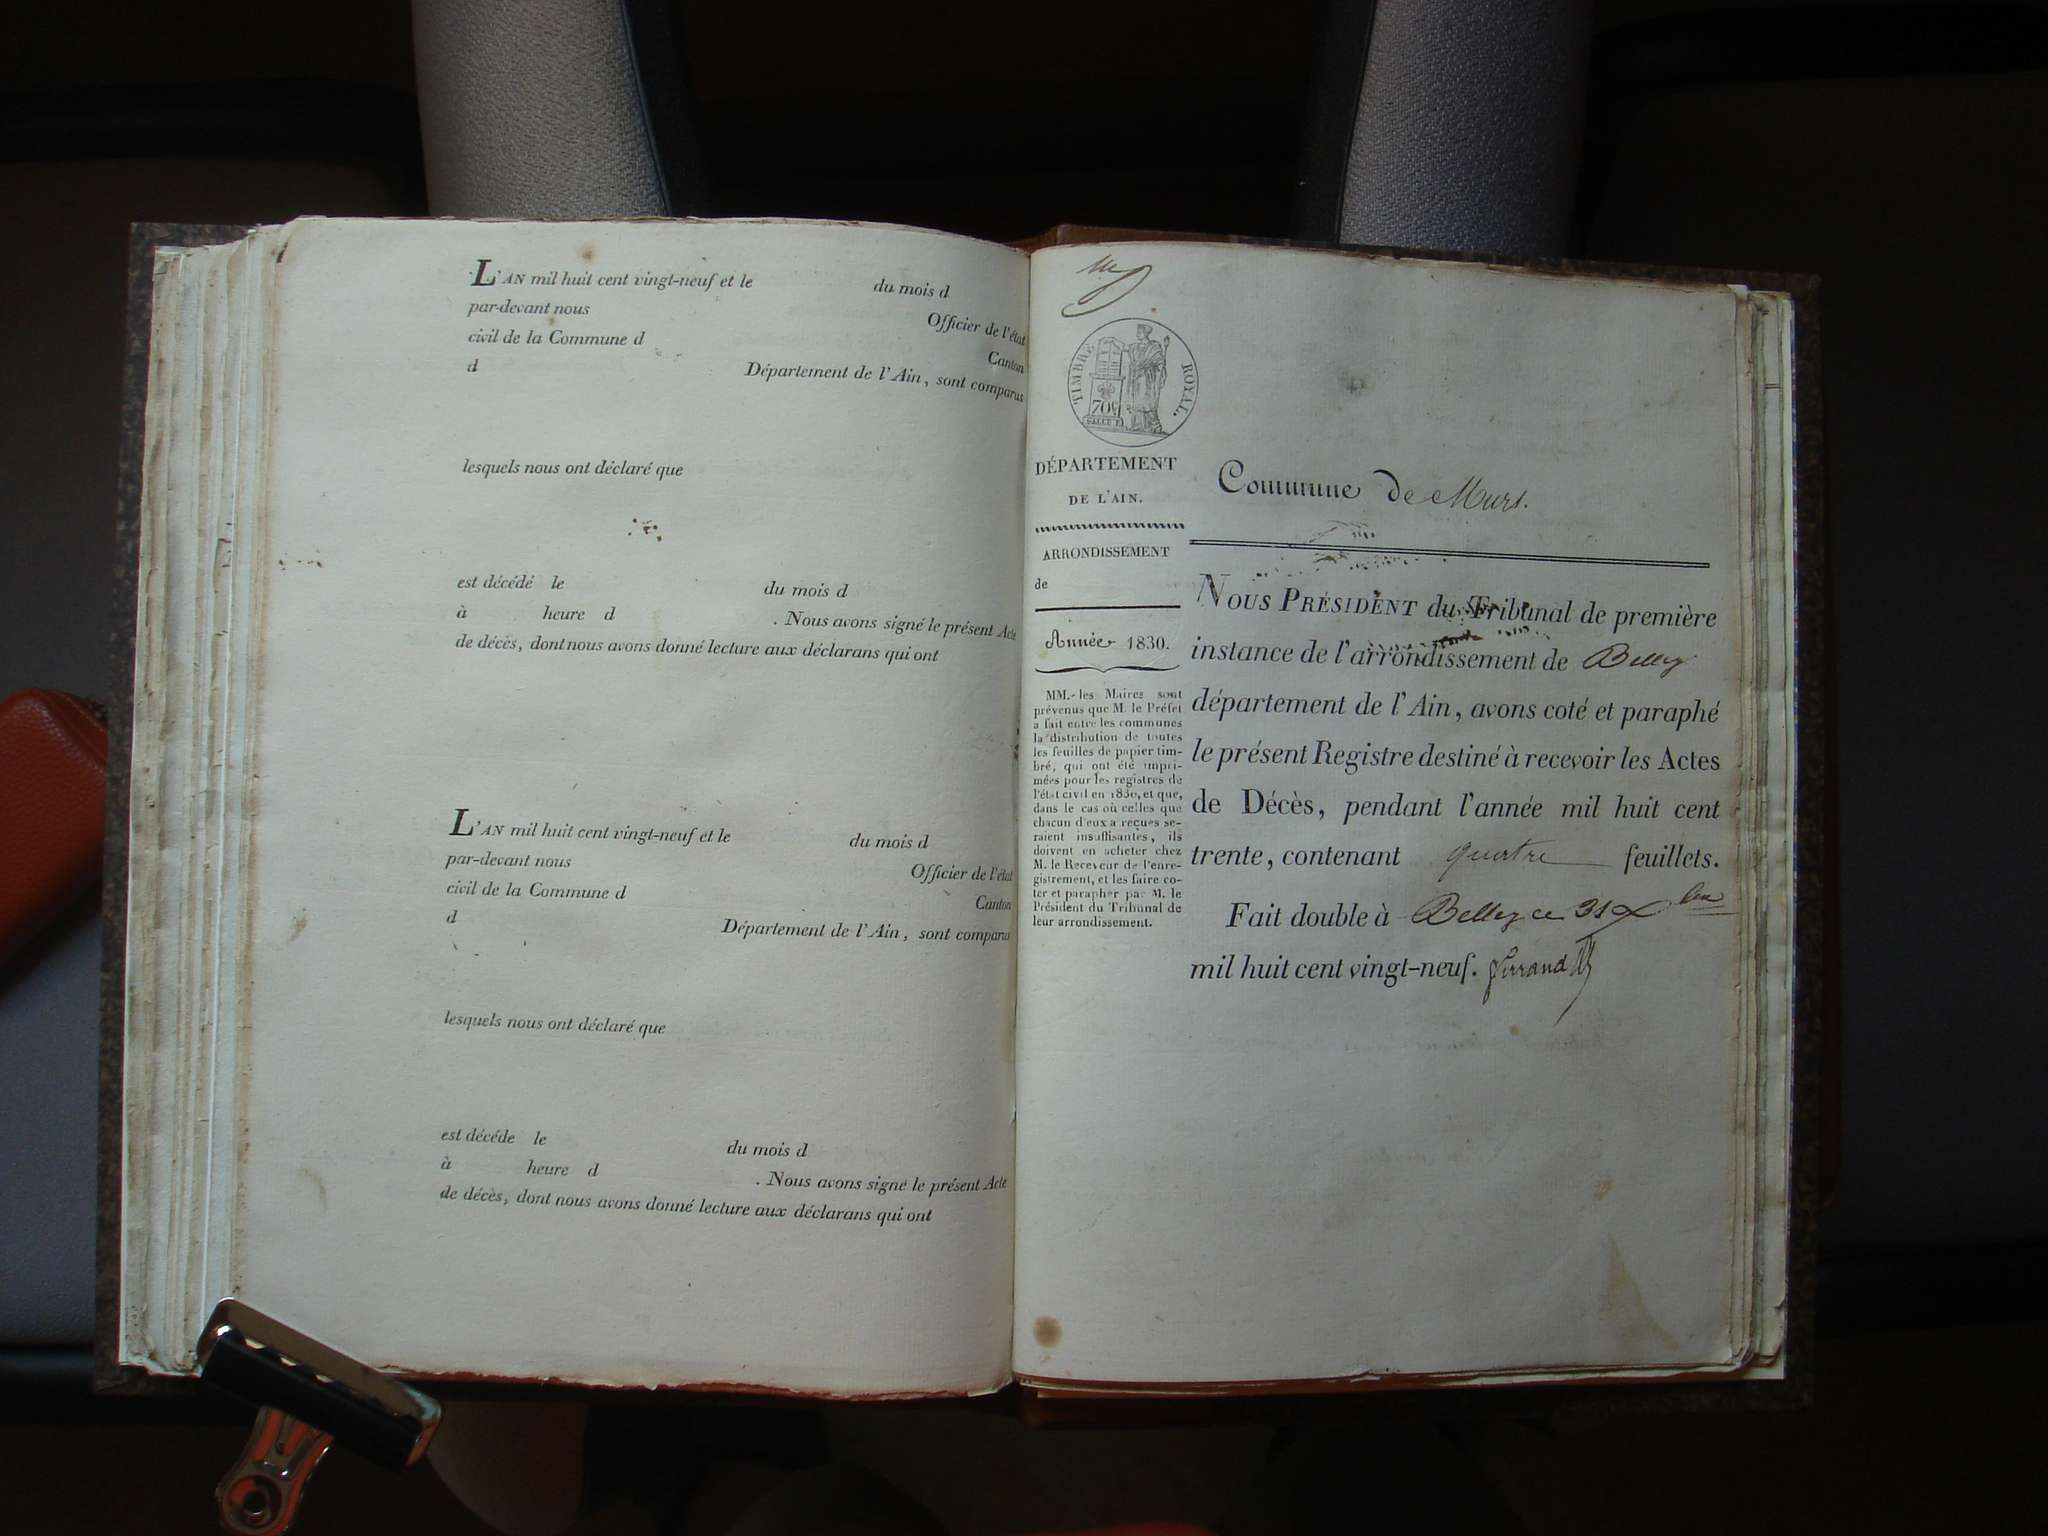 L'AN mil huit cent vingt-neuf et le du mois d
par-devant nous Officier de l'état
civil de la Commune d Canton
d Département de l'Ain, sont comparus
lesquels nous ont déclaré que
est décédé le du mois d
à heure d . Nous avons signé le présent Acte
de décès, dont nous avons donné lecture aux déclarans qui ont
L'AN mil huit cent vingt-neuf et le du mois d
par-devant nous Officier de l'état
civil de la Commune d Canton
d Département de l'Ain, sont comparus
lesquels nous ont déclaré que
est décédé le du mois d
à heure d . Nous avons signé le présent Acte
de décès, dont nous avons donné lecture aux déclarans qui ont
TIMBRE ROYAL.
70c
DÉPARTEMENT
DE L'AIN.
ARRONDISSEMENT
de
Année 1830.
MM. les Maires sont
prévenus que M. le Préfet
a fait entre les communes
la distribution de toutes
les feuilles de papier tim-
bré, qui ont été impri-
mées pour les registres de
l'état civil en 1830, et que,
dans le cas où celles que
chacun d'eux a reçues se-
raient insuffisantes, ils
doivent en acheter chez
M. le Receveur de l'enre-
gistrement, et les faire co-
ter et parapher par M. le
Président du Tribunal de
leur arrondissement.
Commune de Murs.
NOUS PRÉSIDENT du Tribunal de première
instance de l'arrondissement de Belley
département de l'Ain, avons coté et paraphé
le présent Registre destiné à recevoir les Actes
de Décès, pendant l'année mil huit cent
trente, contenant quatre feuillets.
Fait double à Belley ce 31 Xbre
mil huit cent vingt-neuf. Ferrand